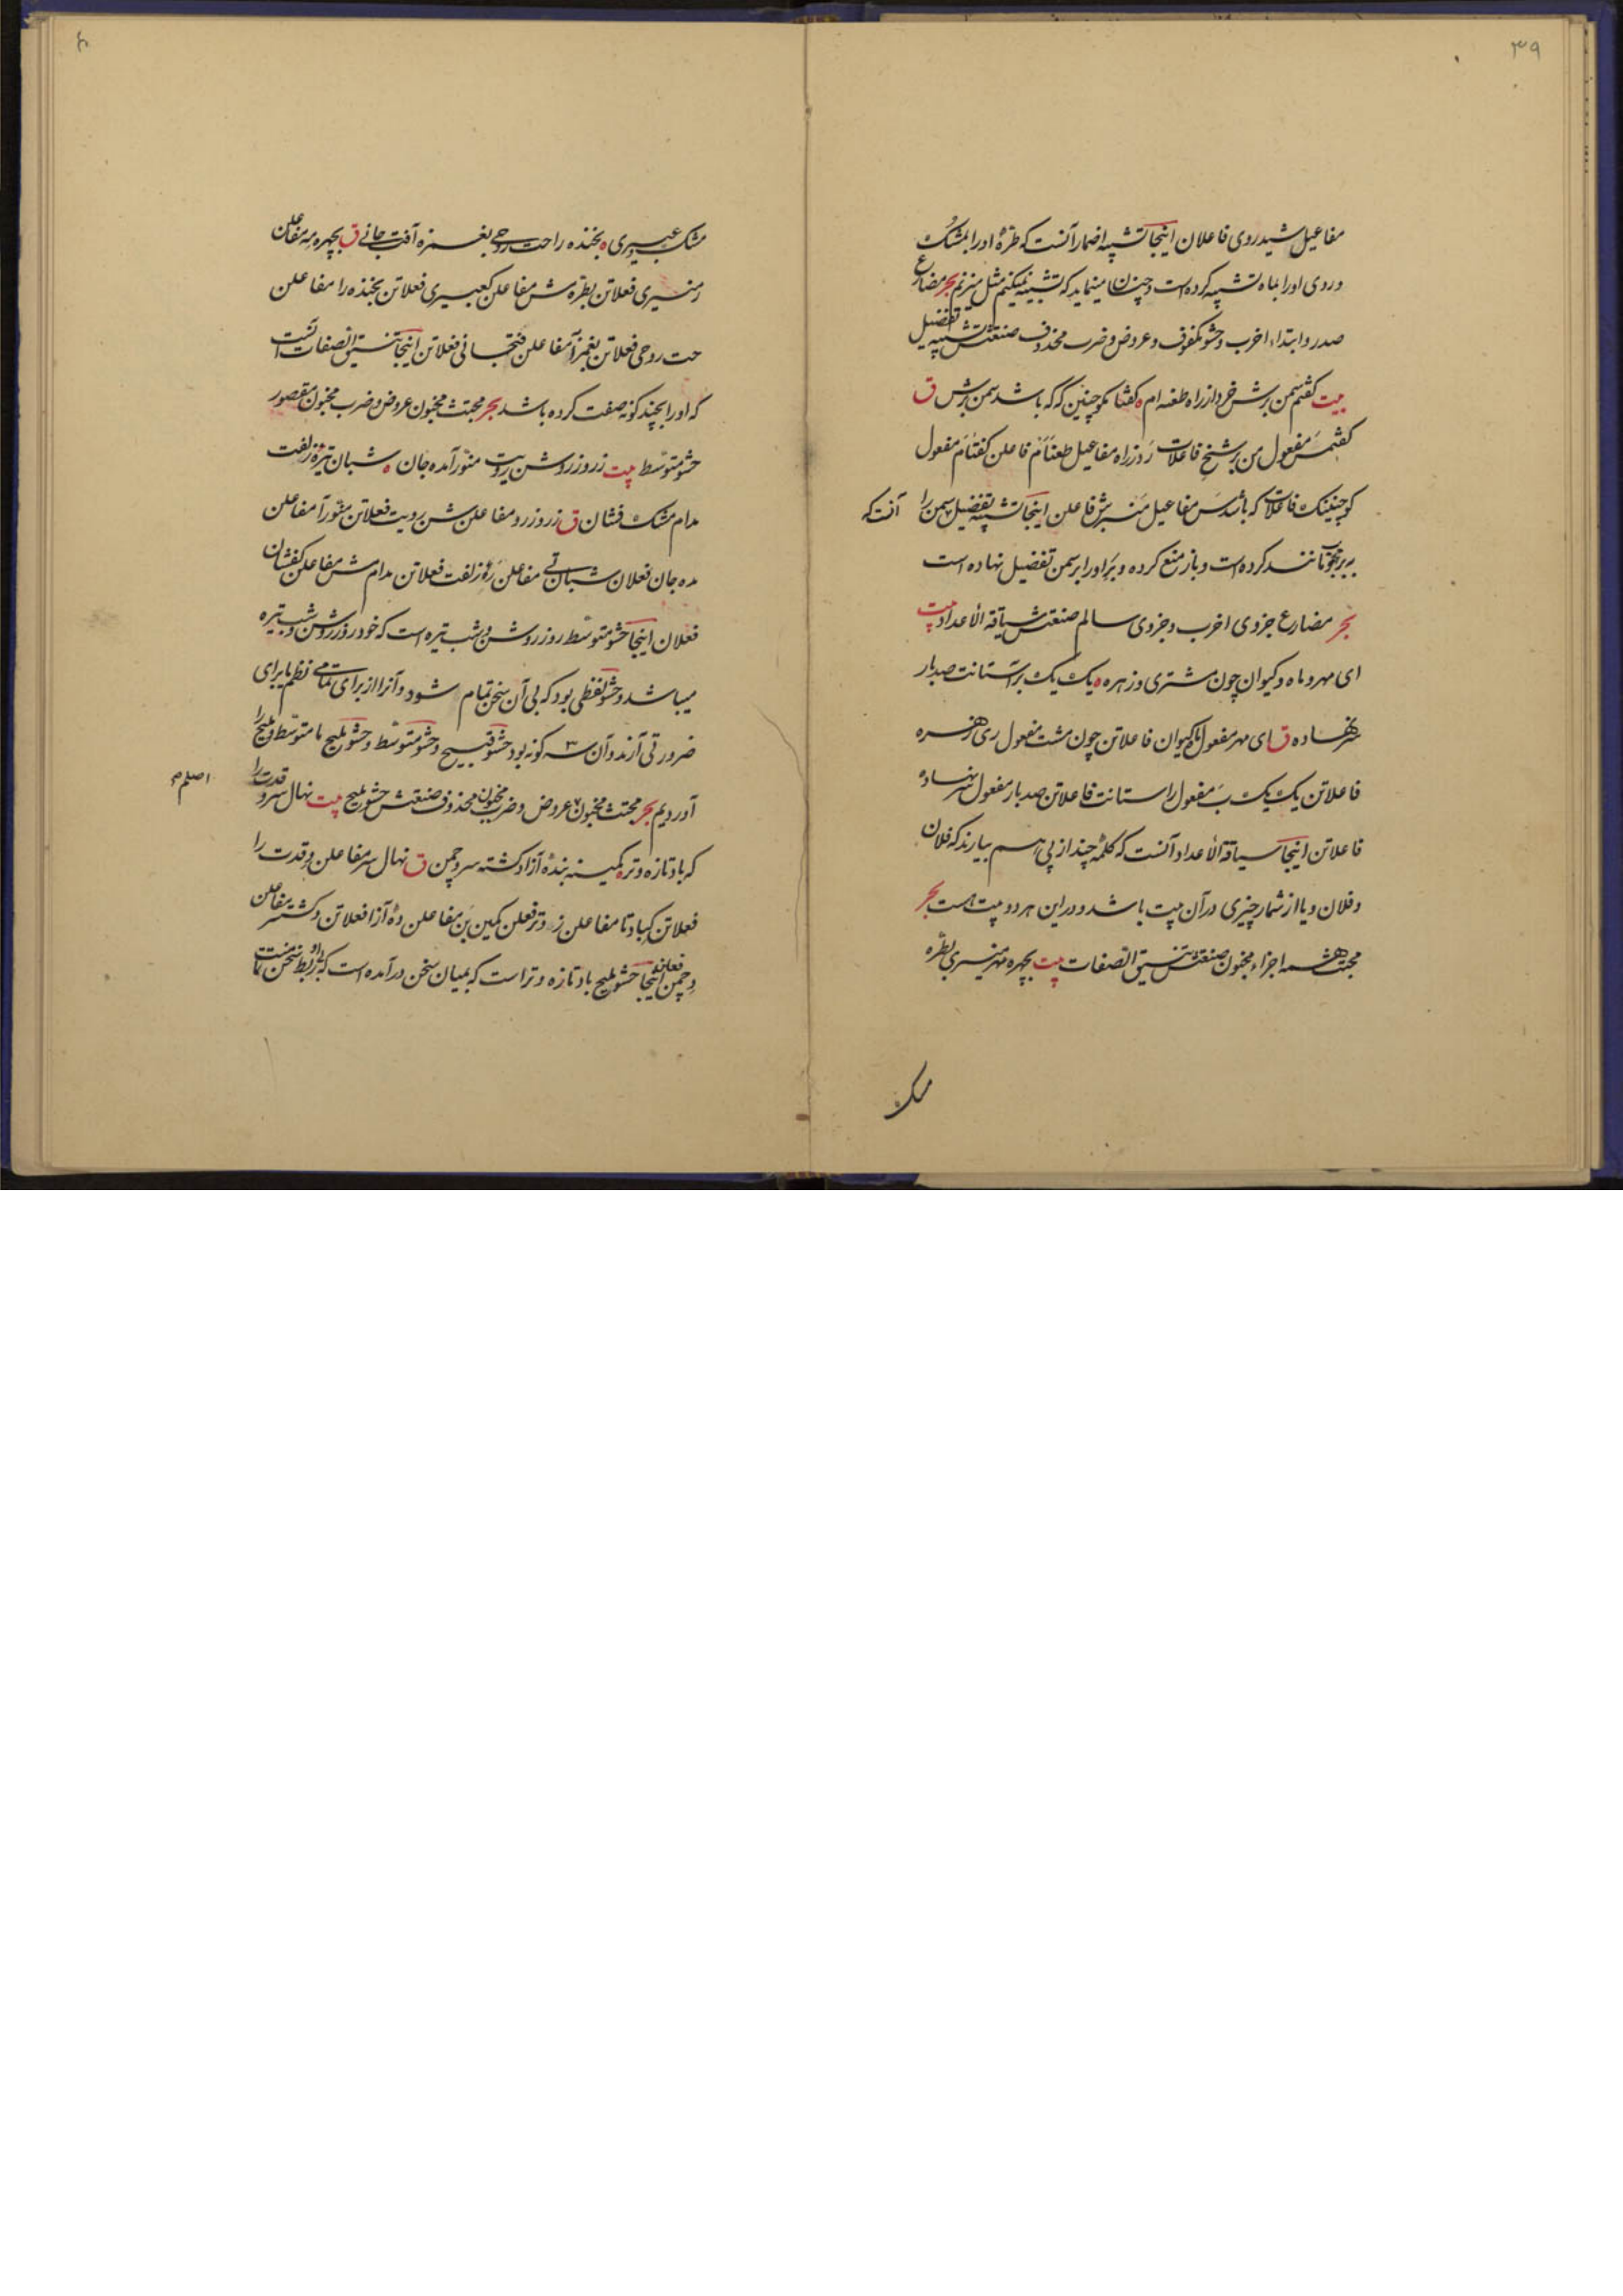 ۳۹
مفاعیل شیدروی فاعلان اینجا تشبیه اضمار آنست که طرهٔ او را بمشک
و روی او را بماه تشبیه کرده است و چنان مینماید که تشبیه نمیکنم مثل میزنم بحر مضارع
صدر و ابتداء اخرب و حشو مکفوف و عروض و ضرب محذوف صنعتش تشبیه تفضیل
بیت گفتم سمن برش خرد از راه طعنه ام ه گفتا مگو چنین که که باشد سمن برش ق
گفتم سَ مفعول من برش خِ فاعلات رَدزراه مفاعیل طعنَاَم فاعلن گفتام مفعول
گو چنینک فاعلات که باشد سَ مفاعیل مَنبرش فاعلن اینجا تشبیه تفضیل سمن را آنست که
به بر محبوب مانند کرده است و باز منع کرده و بر او را بر سمن تفضیل نهاده است
بحر مضارع جزوی اخرب و جزوی سالم صنعتش سیاقة الأعداد بیت
ای مهر و ماه و کیوان چون مشتری و زهره ه یک یک بر آستانت صد بار
سر نهاده ق ای مهر مفعول ماکیوان فاعلاتن چون مشت مفعول ری زهره
فاعلاتن یک یک بَ مفعول راستانت فاعلاتن صد بار مفعول سر نهاده
فاعلاتن اینجا سیاقة الأعداد آنست که کلمهٔ چند از پی هم بیارند که فلان
و فلان و یا از شمار چیزی در آن بیت باشد و در این هر دو بیت هست بحر
مجتث همه اجزاء مخبون صنعتش تنسیق الصفات بیت بچهره مهر منیری بطره
مشک
مشک عبیری ه بخنده راحت روحی بغمزه آفت جانی ق بچهره مه مفاعلن
رمنیری فعلاتن بطره مش مفاعلن کعبیری فعلاتن بخنده را مفاعلن
حت روحی فعلاتن بغمزآ مفاعلن فتجانی فعلاتن اینجا تنسیق الصفات آنست
که او را بچند گونه صفت کرده باشد بحر مجتث مخبون عروض و ضرب مخبون مقصور
حشو متوسط بیت ز روز روشن رویت منور آمده جان ه شبان تیرهٔ زلفت
مدام مشک فشان ق ز روز رو مفاعلن شن رویت فعلاتن منور آ مفاعلن
مده جان فعلان شبان تی مفاعلن رهٔ زلفت فعلاتن مدام مش مفاعلن کفشان
فعلان اینجا حشو متوسط روز روشن و شب تیره است که خود روز روشن و شب تیره
میباشد و حشو لفظی بود که بی آن سخن تمام شود و آنرا از برای تمامی نظم یا برای
ضرورتی آرند و آن ۳ گونه بود حشو قبیح و حشو متوسط و حشو ملیح ما متوسط و ملیح را
آوردیم بحر مجتث مخبون عروض و ضرب مخبون محذوف صنعتش حشو ملیح بیت نهال سرو قدت را
اصلم
که باد تازه و تر ه کمینه بندهٔ آزاد گشته سرو چمن ق نهال سر مفاعلن و قدت را
فعلاتن کباد تا مفاعلن زِ و تر فعلن کمین بَن مفاعلن دهٔ آزا فعلاتن د گشته سر مفاعلن
و چمن فعلن اینجا حشو ملیح باد تازه و تر است که بمیان سخن در آمده است